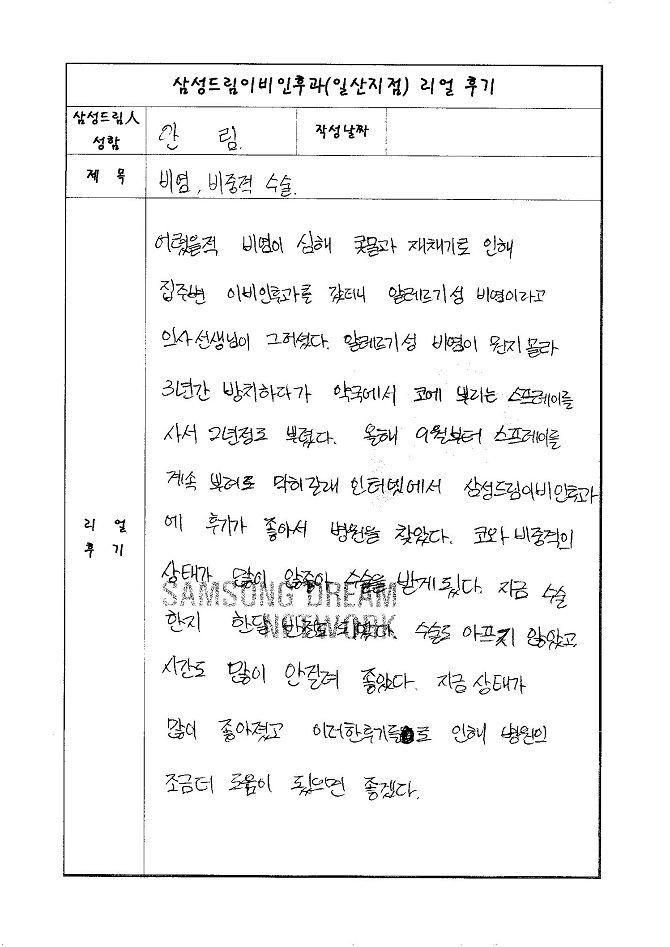 삼성드림이비인후과(일산지점) 리얼 후기
삼성드림人 성함
안 림.
작성날짜
제 목
비염, 비중적 수술.
리 얼 후 기
어렸을적 비염이 심해 콧물과 재채기로 인해
집주변 이비인후과를 갔더니 알레르기성 비염이라고
의사선생님이 그러셨다. 알레르기성 비염이 뭔지 몰라
3년간 방치하다가 약국에서 코에 뿌리는 스프레이를
사서 2년정도 뿌렸다. 올해 9월부터 스프레이를
계속 뿌려도 막히길래 인터넷에서 삼성드림이비인후과
에 후기가 좋아서 병원을 찾았다. 코와 비중적의
상태가 많이 않좋아 수술을 받게 됬다. 지금 수술
한지 한달 수술도 아프지 않았고
시간도 많이 안걸려 좋았다. 지금 상태가
많이 좋아졌고 이러한후기를 로 인해 병원의
조금더 도움이 됬으면 좋겠다.
SAMSONG DREAM
NETWORK